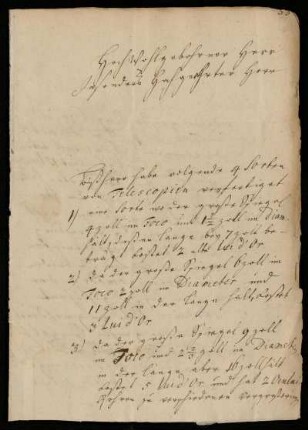 HochWohlgebohrner Herr
Hochgeehrter Herr
Bißhero habe volgende 4 Sorten
von Telescopien verfertiget
1) eine Sorte wo der große Spiegel
4 zoll im Foco und 1½ zoll im Diam.
hält, deßen lange bey 7 zoll be-
trägt kostet 2 alte Lui d'Or.
2) da der große Spiegel 6 zoll in
Foco 2 zoll in Diameter und
11 zoll in der lange hält, kostet
3 Lui d'Or.
3) da der große Spiegel 9 zoll
in Foco und 2½ zoll in Diamet.
in der lange aber 16 zoll hält
kostet 5 Lui d'Or und hat 2 Ocular
Rohren zu verschiedener Vergrößerung